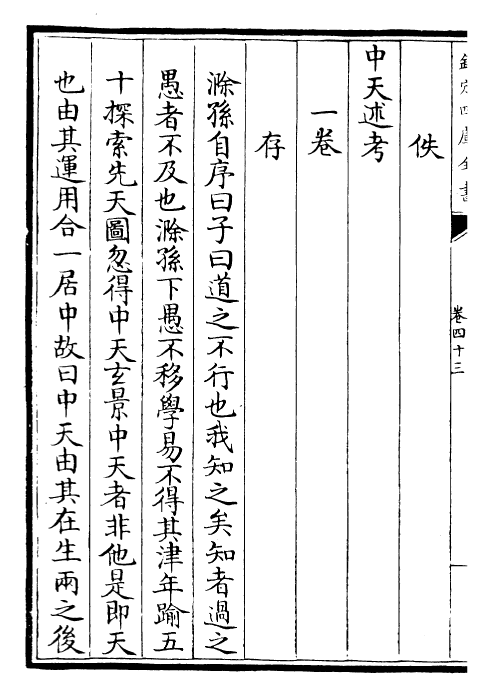 欽定四庫全書
卷四十三
佚
中天述考
一卷
存
滁孫自序曰子曰道之不行也我知之矣知者過之
愚者不及也滁孫下愚不移學易不得其津年踰五
十探索先天圖忽得中天玄景中天者非他是即天
也由其運用合一居中故曰中天由其在生兩之後